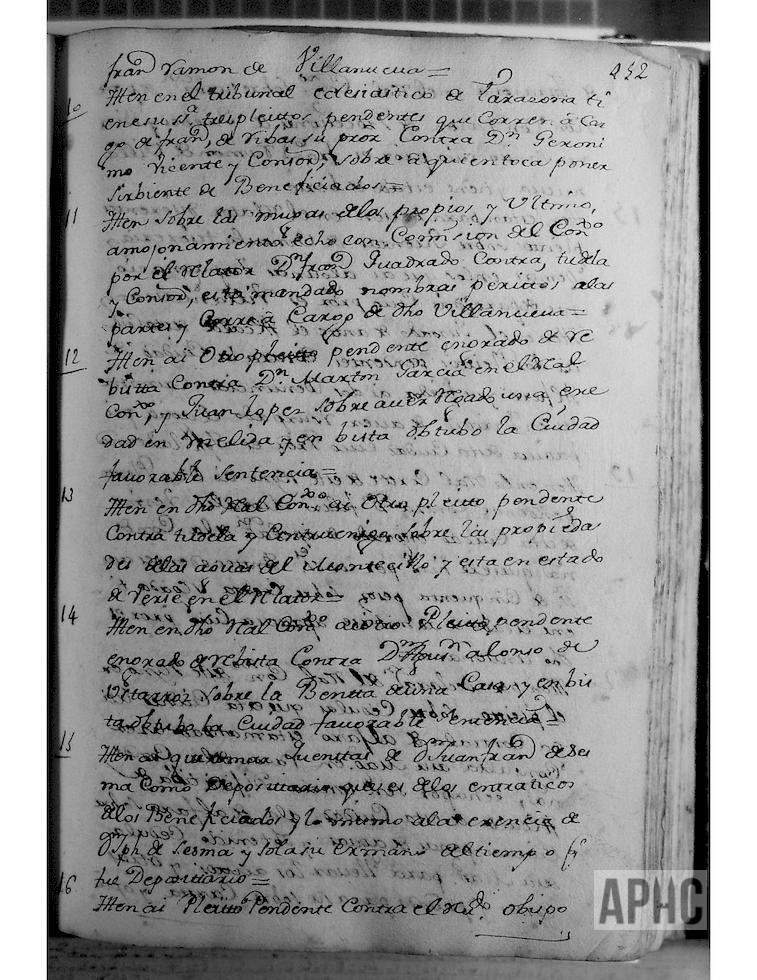 452
fran^co Ramon de Villanueva =
10 Itten en el tribunal eclesiastico de Tarazona ti
ene su s^a. tres pleittos, pendentes que Corren a Car
go de fran^co, de Vibas su pror Contra D^n Geroni
mo Vicente y Consor^s, sobre a quien toca poner
Sirbiente de Beneficiados =
11 Itten sobre las mugas de los propios, y Ultimo,
amojonamiento echo con Comision del Con^xo
por el Relator D^n fran^co Quadrado Contra, tudela
y Consor^s, esta mandado nombrar peritos a las
partes y Corre a Cargo de dho Villanueva =
12 Itten ai Otro pleitto pendente en grado de Re
bista Contra D^n Martin Garcia en el Real
Con^xo, y Juan lopez Sobre aver una ere
dad en melida y en bista obtubo la Ciudad
favorable Sentencia =
13 Itten en dho Real Con^xo ai Otro pleitto pendente
Contra tudela y Centruenigo Sobre las propieda
des de las aguas del Montecillo y esta en estado
de Verse en el Relator =
14 Itten en dho Real Con^xo ai otro Pleitto pendente
en grado de rebista Contra D^n alonso de
sobre la Bentta de una Casa y en bis
ta obtubo la Ciudad favorable Sentencia =
15 Itten ai que tomar Quenttas de Juan fran^co de Ses
ma Como Depositario que es, de los entraticos
de los Beneficiados y lo mismo a la erencia de
D^n Jph de Sesma y su Ermano del tiempo q
fue Depositario =
16 Itten ai Pleitto Pendente Contra el obispo
APHC